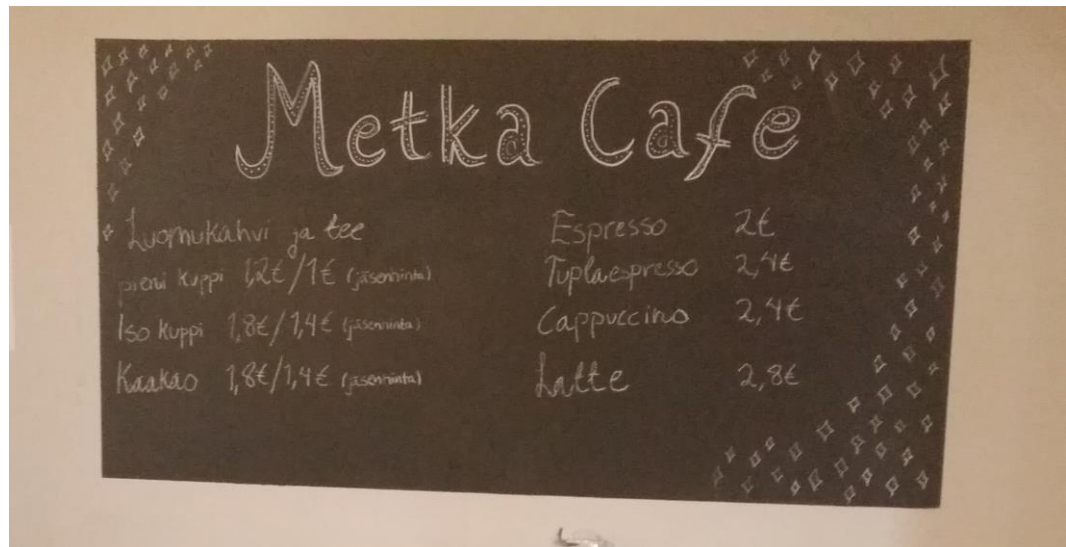 Metka Cafe
Luomukahvi ja tee
pieni kuppi 1,2€/1€ (jäsenhinta)
Iso kuppi 1,8€/1,4€ (jäsenhinta)
Kaakao 1,8€/1,4€ (jäsenhinta)
Espresso 2€
Tuplaespresso 2,4€
Cappuccino 2,4€
Latte 2,8€